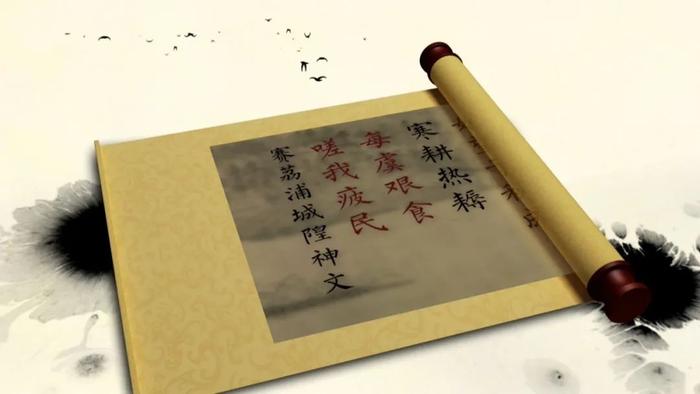 寒耕热耨
每虞艰食
嗟我疲民
赛荔浦城隍神文